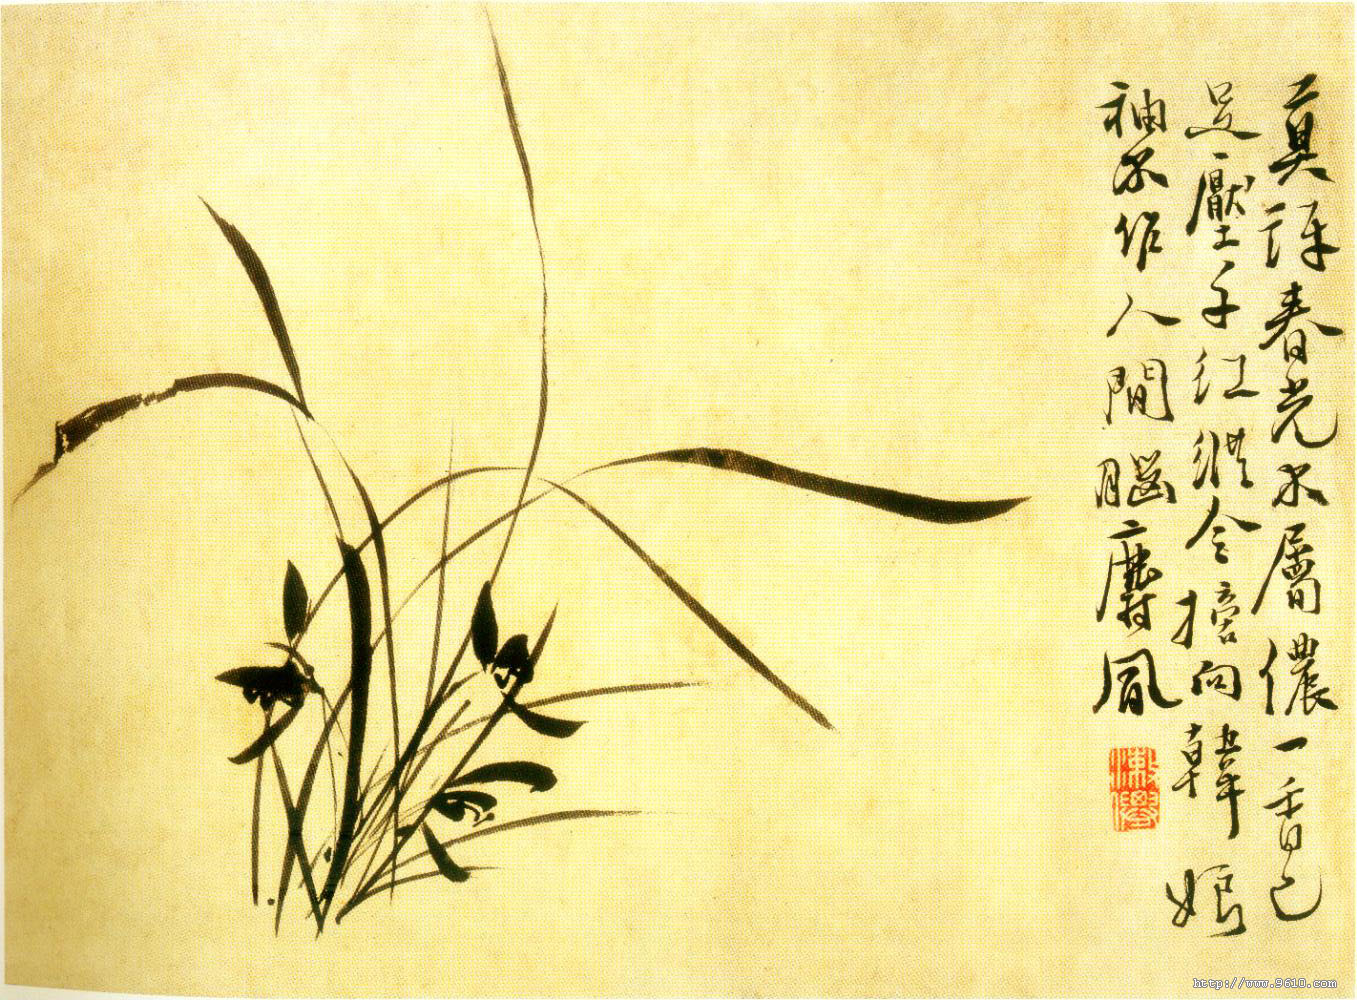 莫訝春光不屬儂一香已
足壓千紅總令摘向韓娘
袖不作人間腦麝風
http://www.9610.com